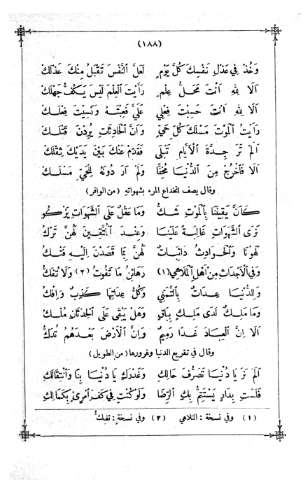 (١٨٨)
وَخُذْ فِي عَذْلِ نَفْسِكَ كُلَّ يَوْمٍ لَعَلَّ النَّفْسَ تَقْبَلُ مِنْكَ عَذْلَكْ
أَلَا لِلّٰهِ أَنْتَ مَحَلَّ عِلْمٍ رَأَيْتَ الْعِلْمَ لَيْسَ يَكُفُّ جَهْلَكْ
أَلَا لِلّٰهِ أَنْتَ حَسِبْتَ فِعْلِي عَلَيَّ فَعِبْتَهُ وَنَسِيتَ فِعْلَكْ
رَأَيْتَ الْمَوْتَ مَسْلَكَ كُلِّ حَيٍّ وَأَنَّ الْحَادِثَاتِ يُرِدْنَ قَتْلَكْ
أَلَمْ تَرَ جِدَّةَ الْأَيَّامِ تَبْلَى
أَلَا فَاخْرُجْ مِنَ الدُّنْيَا مُخِفًّا
وقال يصف انخداع المرء بشهواته (من الوافر)
كَأَنَّ يَقِينَنَا بِالْمَوْتِ شَكُّ وَمَا عَقْلٌ عَلَى الشَّهَوَاتِ يَزْكُو
نَرَى الشَّهَوَاتِ غَالِبَةً عَلَيْنَا وَعِنْدَ الْمُتَّقِينَ لَهُنَّ تَرْكُ
لَهَوْنَا وَالْحَوَادِثُ دَائِبَاتٌ لَهُنَّ بِمَا قَصَدْنَ إِلَيْهِ فَتْكُ
وَفِي الْأَجْدَاثِ مِنْ أَهْلِ الْمَلَاهِي (١) رَهَائِنُ مَا تَفُوتُ (٢) وَلَا تُفَكُّ
وَلِلدُّنْيَا عِدَاتٌ بِالتَّمَنِّي وَكُلُّ عِدَاتِهَا كَذِبٌ وَإِفْكُ
وَمَا مُلْكٌ لِذِي مُلْكٍ بِبَاقٍ وَهَلْ يَبْقَى عَلَى الْحَدَثَانِ مُلْكُ
أَلَا إِنَّ الْعِبَادَ غَدًا رَمِيمٌ وَإِنَّ الْأَرْضَ بَعْدَهُمُ تُدَكُّ
وقال في تقريع الدنيا وغرورها (من الطويل)
أَلَمْ تَرَ يَا دُنْيَا تَصَرُّفَ حَالِكِ وَغَدْرَكِ يَا دُنْيَا بِنَا وَانْتِقَالَكِ
فَلَسْتِ بِدَارٍ يَسْتَتِمُّ بِكِ الرِّضَا وَلَوْ كُنْتِ فِي كَفِّ امْرِئٍ بِكَمَالِكِ
(١) وفي نسخة: التلاهي (٢) وفي نسخة: تفكُّ